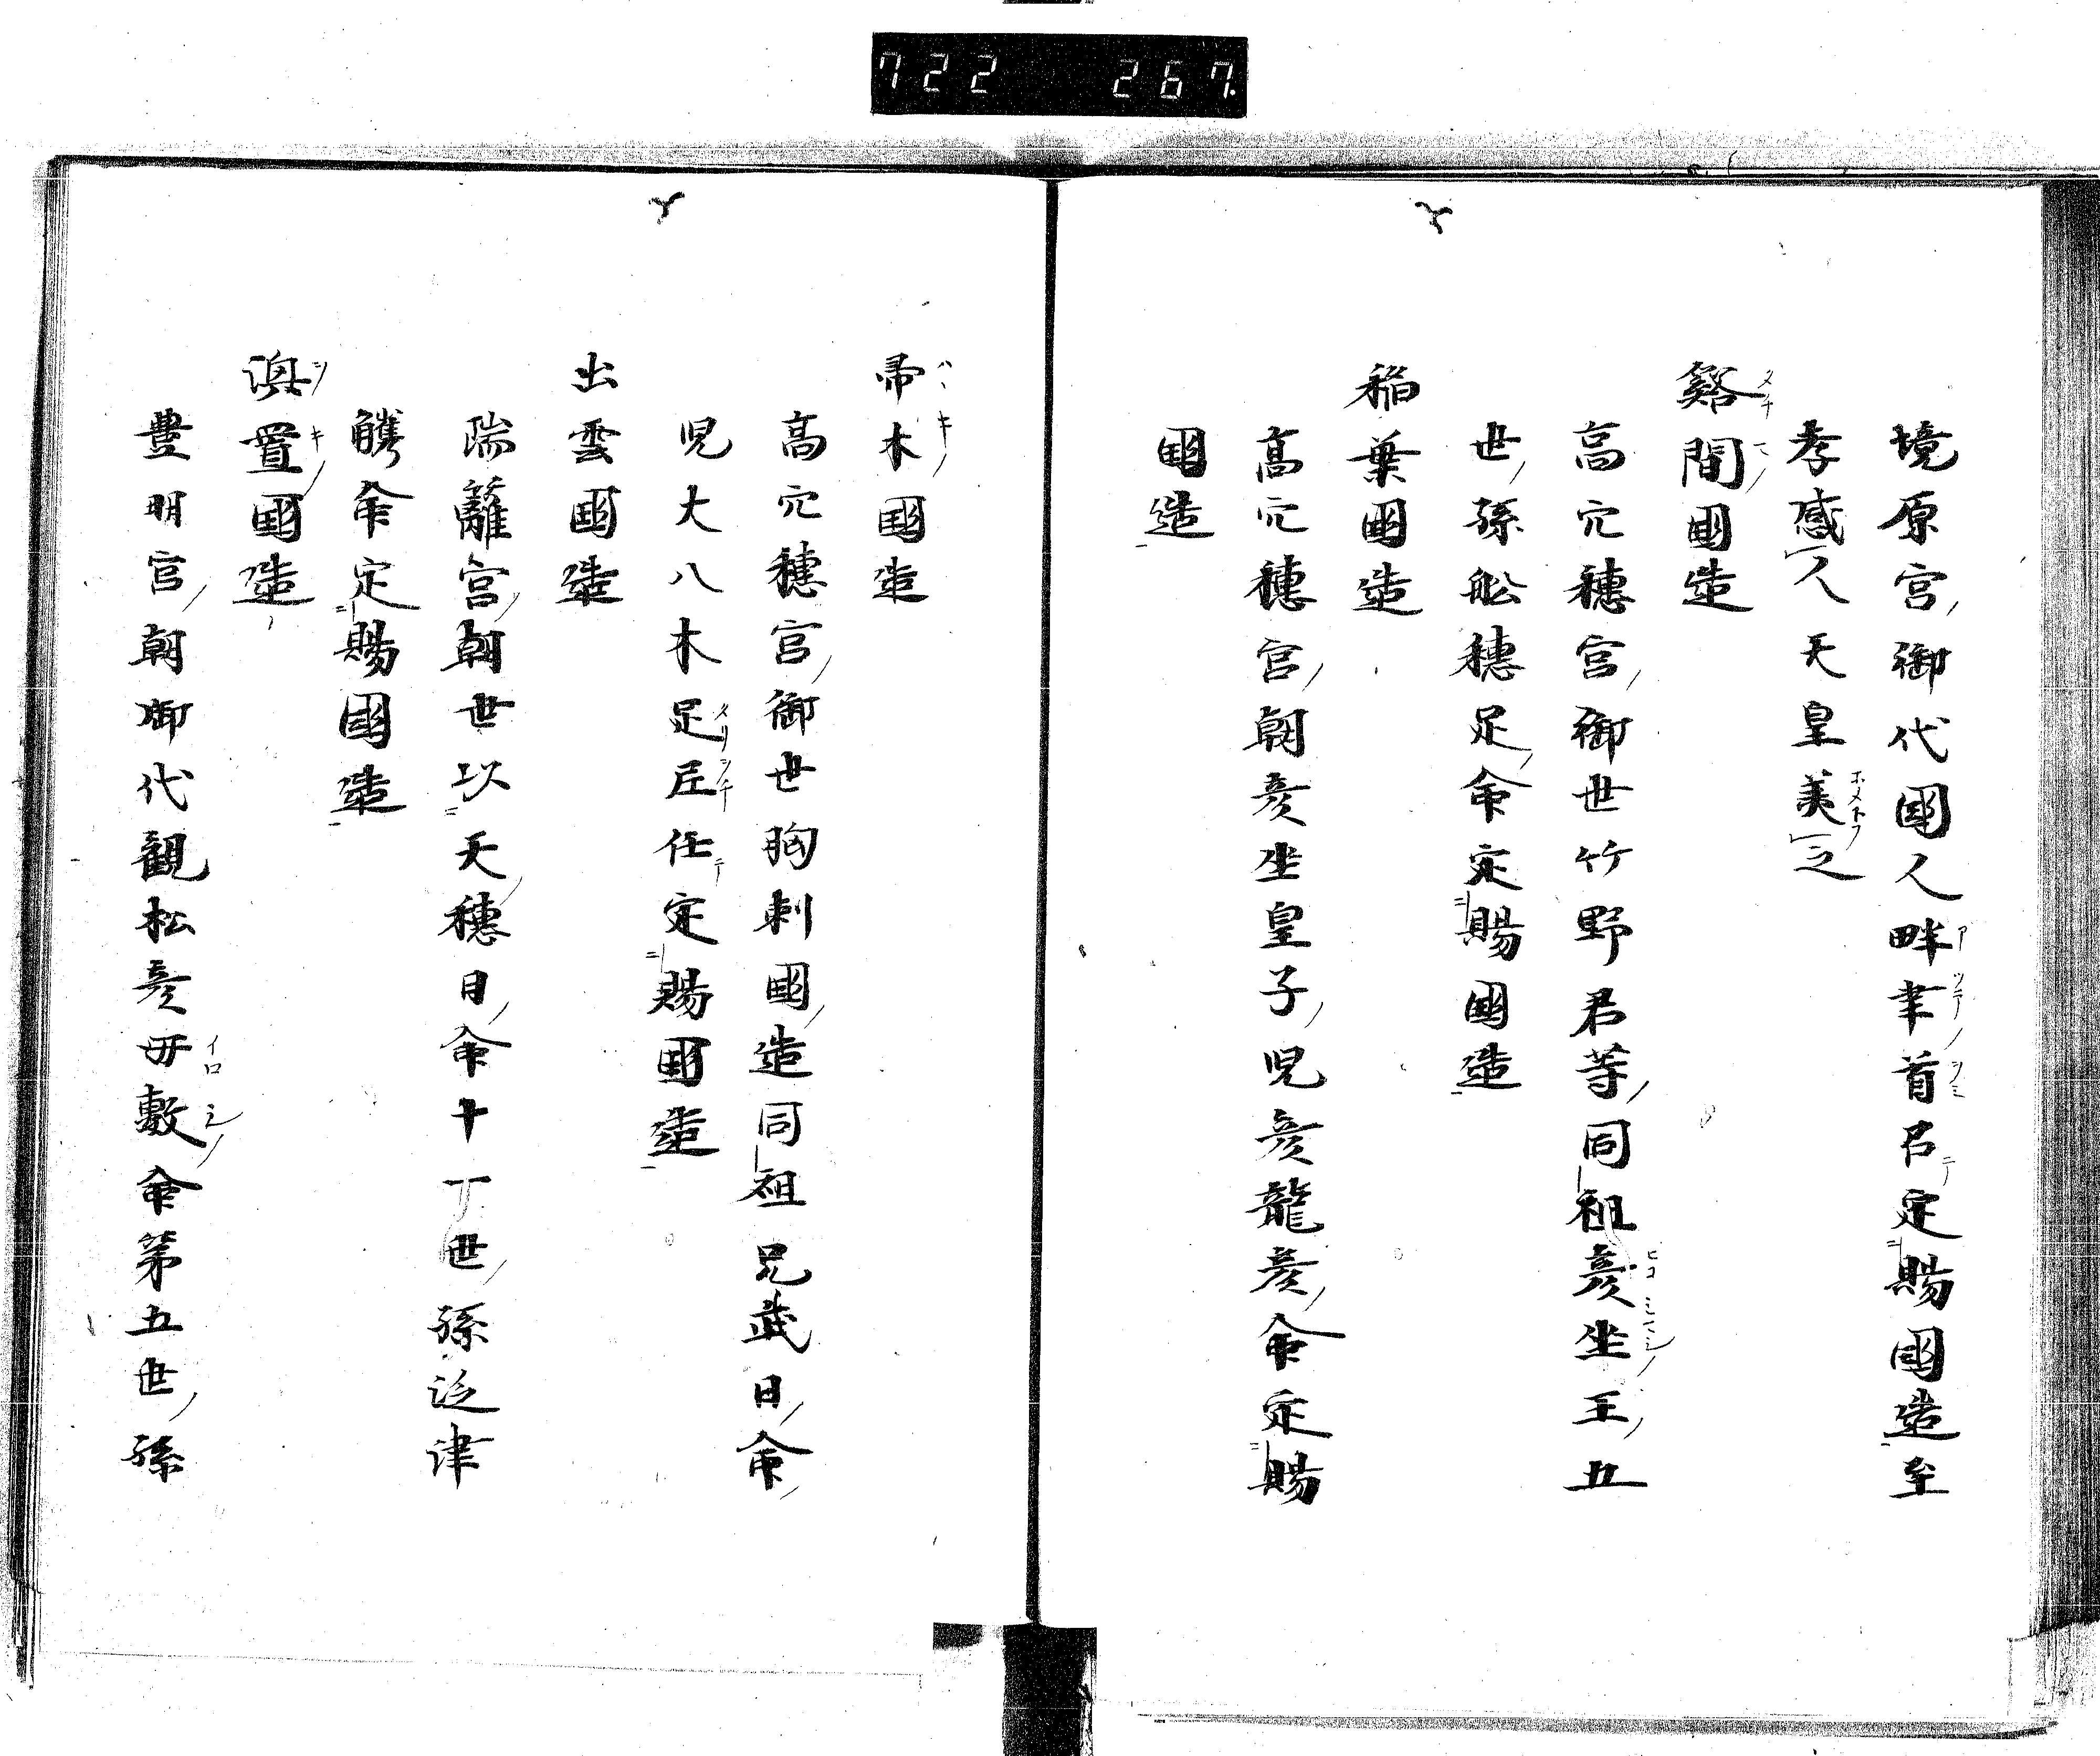 722 267.
境原宮御代國人畔聿首召定賜國造至
孝感人天皇美之
谿間國造
高穴穗宮御世竹野君等同祖彦坐王五
世孫舩穗足命定賜國造
稲葉國造
高穴穗宮朝彦坐皇子児彦龍彦命定賜
國造
帚木國造
高穴穗宮御世胸刺國造同祖兄武日命
児大八木足𡰱任定賜國造
出雲國造
瑞籬宮朝世以天穗日命十丁世孫
命定賜國造
置國造
豊明宮朝御代観松彦毋敷命第五世孫